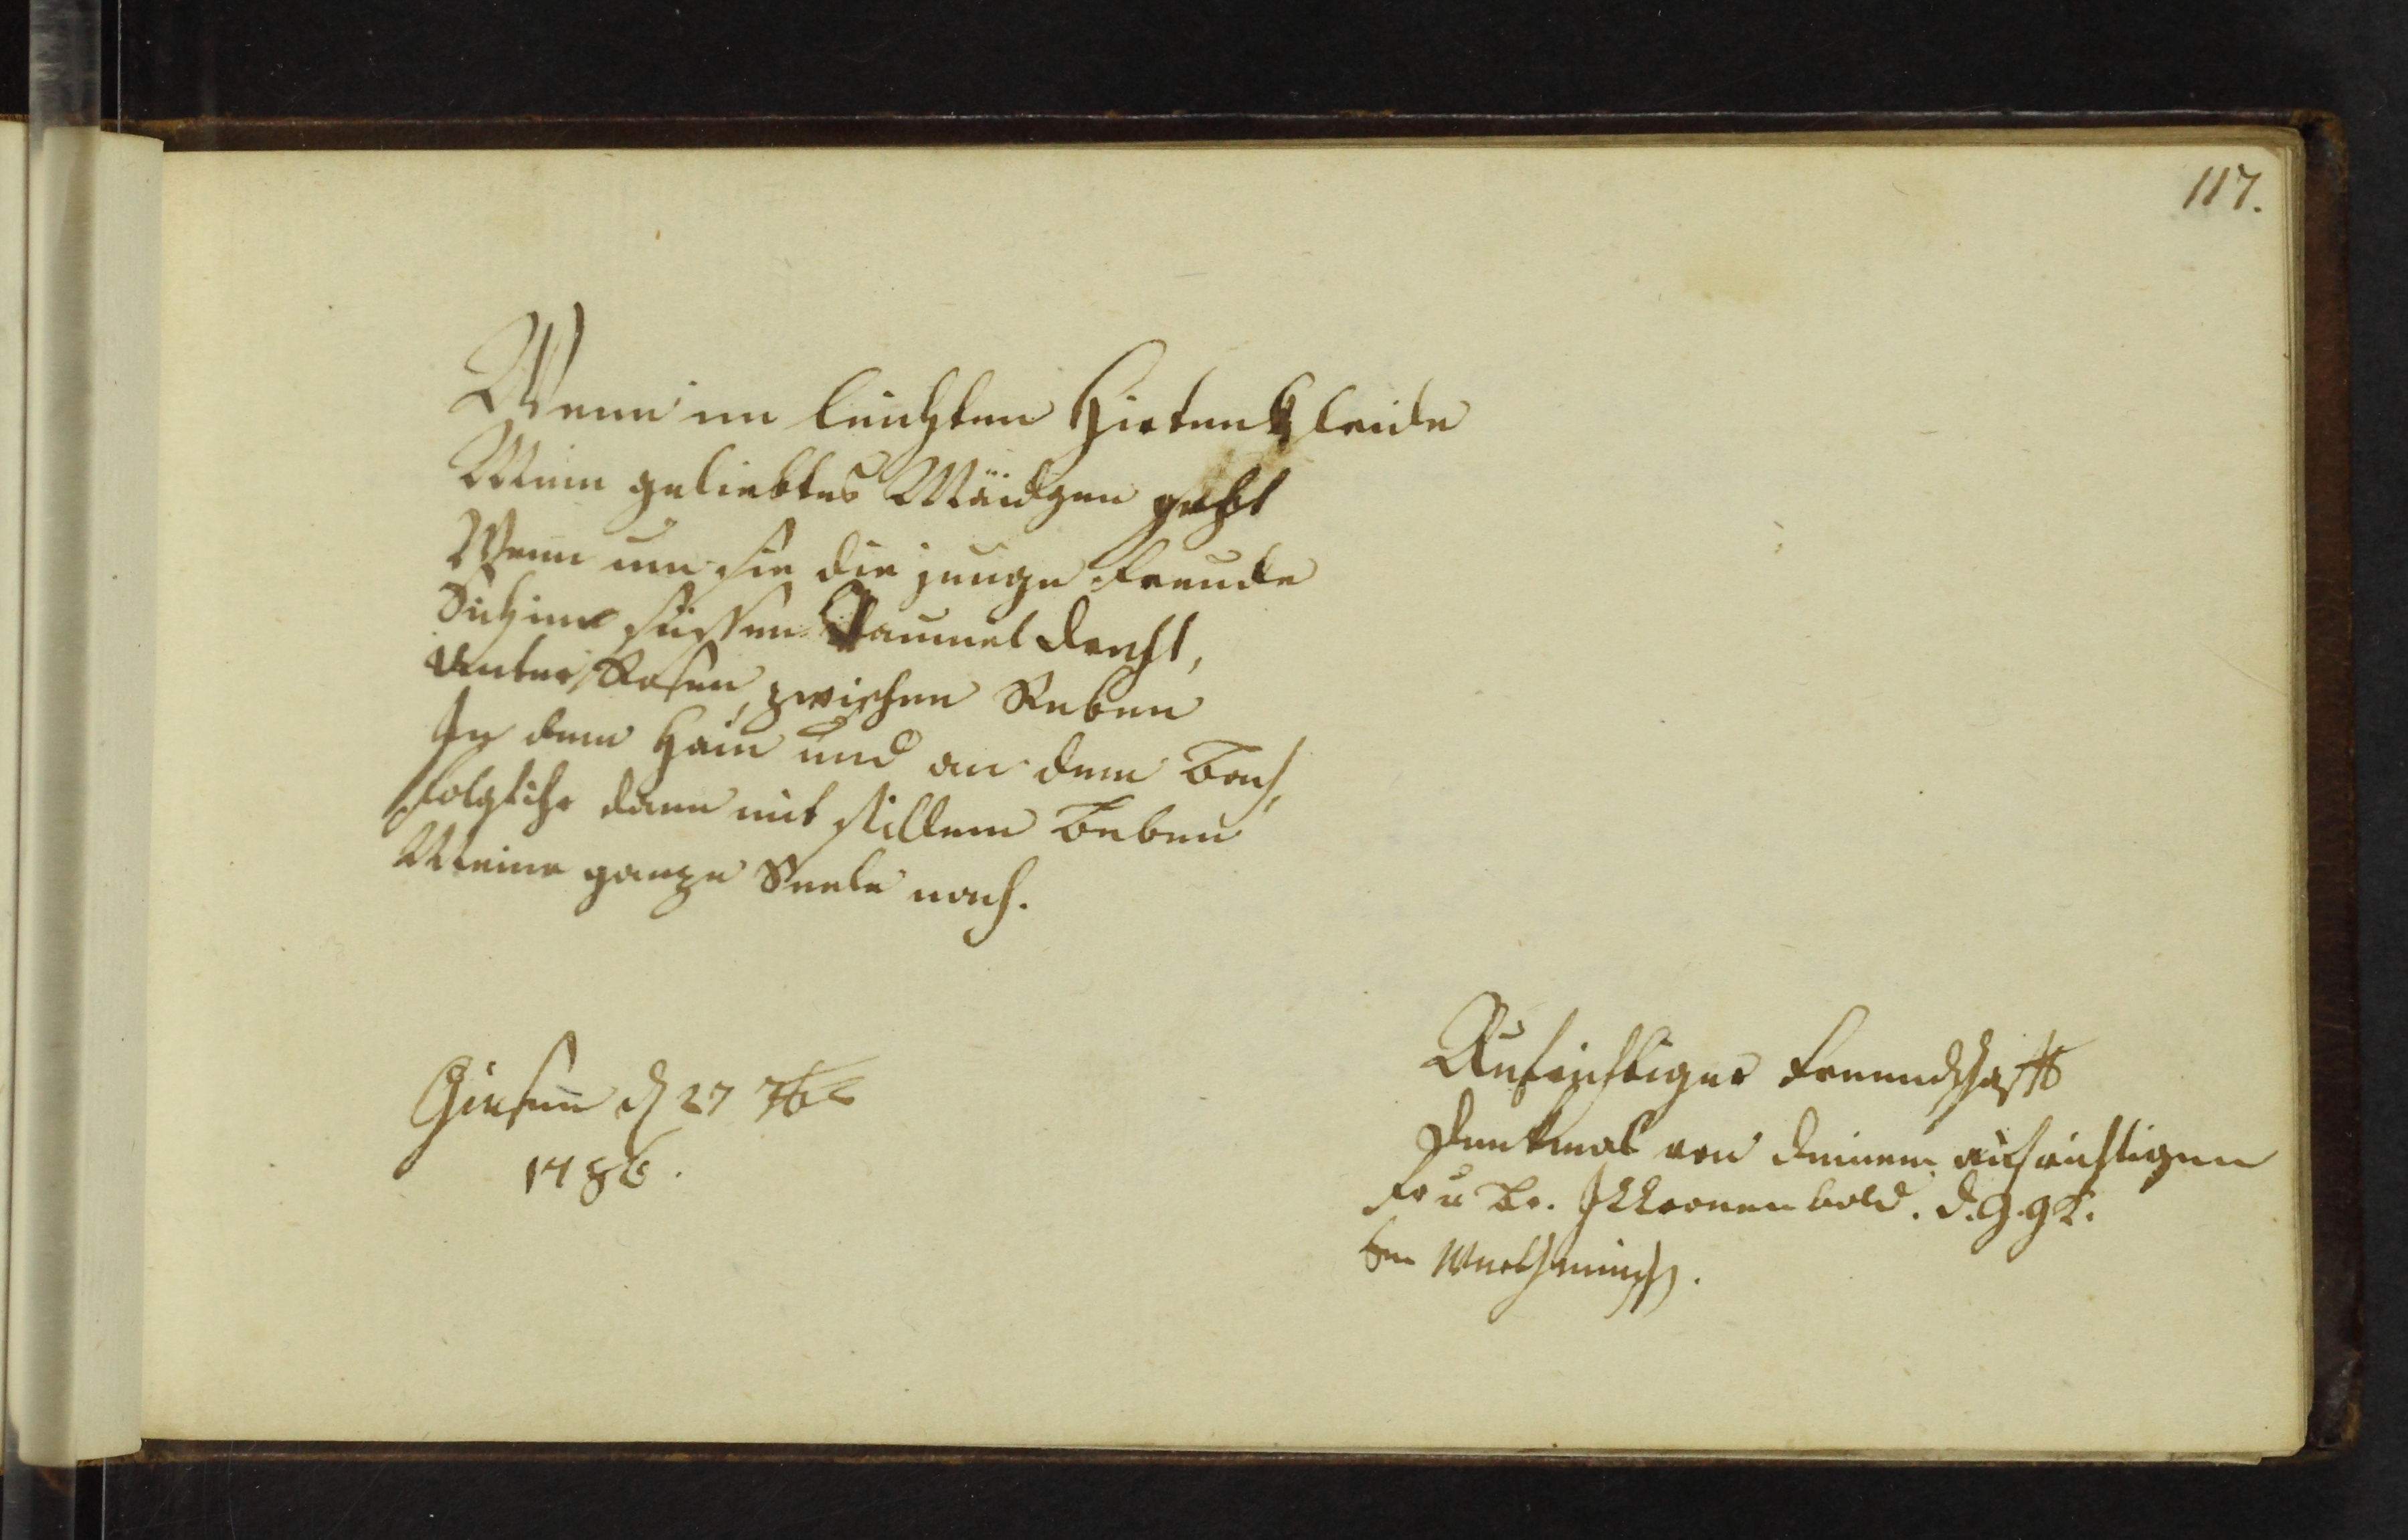 117.
Wenn im leichten Hirtenkleide
Mein geliebtes Mäidgen geht
Wenn um sie die junge Freude
Sich im süssen Taumel dreht,
Unter Rosen, zwischen Reben
In dem Hain und an dem Bach,
Folgt ihr dann mit stillem Beben
Meine ganze Seele nach.
Giesen d 27 7br
1786.
Aufrichtiger Freundschafft
Denkmal von deinem aufrichtigen
Fr u Br. Kronenbold. d. G. g B.